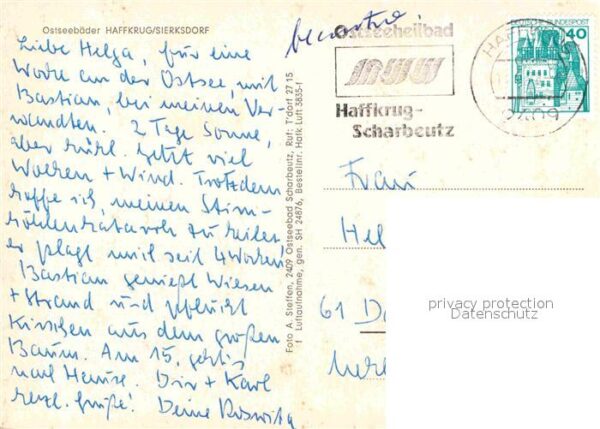 Ostseebäder HAFFKRUG/SIERKSDORF
Liebe Helga, für eine
Woche an der Ostsee, mit
Bastian, bei meinen Ver-
wandten. 2 Tage Sonne,
aber kühl. Jetzt viel
Wolken + Wind. Trotzdem
hoffe ich, meinen Stirn-
höhlenkatarrh zu heilen,
er plagt mich seit 4 Wochen!
Bastian genießt Wiesen
+ Strand und pflückt
Kirschen aus dem großen
Baum. Am 15. geht's
nach Hause. Dir + Karl
herzl. Grüße! Deine Roswita
Foto A. Steffen, 2409 Ostseebad Scharbeutz, Ruf: T'dorf 27 15
f Luftaufnahme, gen. SH 24876, Bestellnr. Hafk Luft 3835-f
Ostseeheilbad
Haffkrug-
Scharbeutz
2409
DEUTSCHE BUNDESPOST
40
Frau
Hel
61 Da
privacy protection
Datenschutz